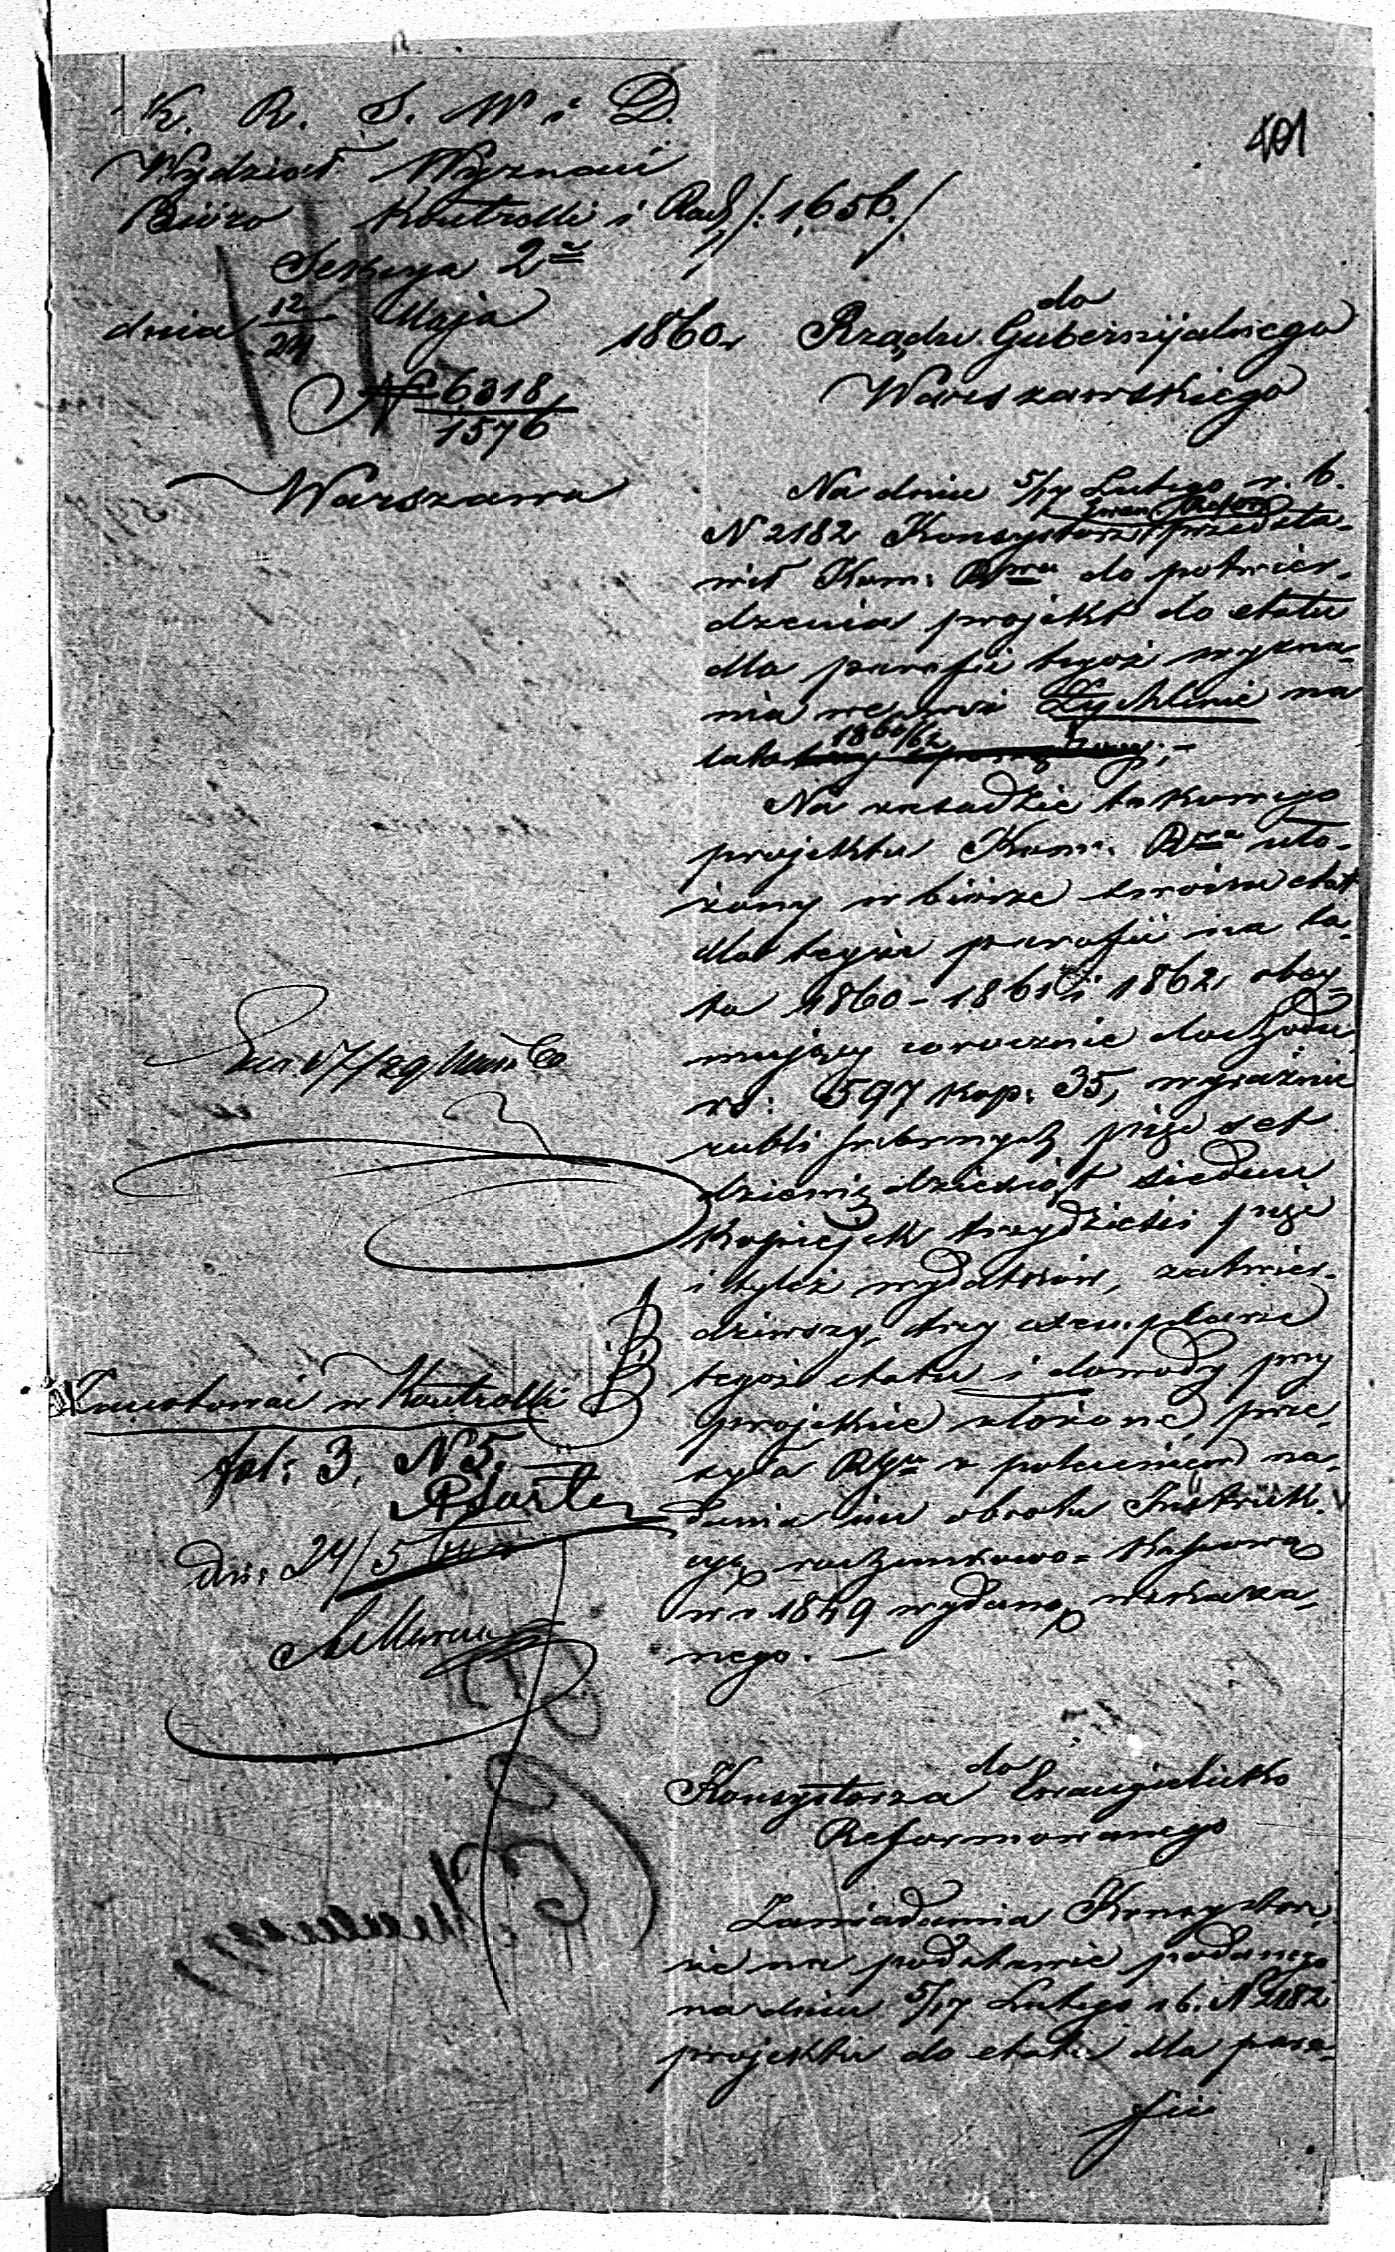 401
K. R. S. W. i D.
Wydział Wyznań
Biuro Kontrolli i Rach /:1,656./
Sekcya 2ª
dnia 12/24 Maja 1860.
N 6318/1576
Warszawa
do
Rządu Gubernijalnego
Warszawskiego
Na dniu 5/17 Lutego r. b.
N 2182 Konsystorz Ewan Reform przedsta-
wił Kom: Rwa do potwier-
dzenia projekt do etatu
dla parafii tegoż wyzna-
nia we wsi Żychlinie na
lata 1860/62
Na zasadzie takowego
projektu Kom: Rwa uło-
żony w biurze swoim etat
dla tejże parafii na la-
ta 1860 - 1861 i 1862 obej-
mujący corocznie dochodu
rs: 597 kop: 35, wyraźnie
rubli srebrnych pięć set
dziewięćdziesiąt siedem
kopiejek trzydzieści pięć
i tyleż wydatków, zatwier-
dziwszy, trzy exemplarze
tegoż etatu i dowody przy
projekcie złożone, prze-
syła Rgu z poleceniem na-
dania im obrotu Instruk-
cyą rachunkowo-kassową
w r 1849 wydaną wskaza-
nego. —
Zanotować w Kontrolli
fol: 3. N 5.
dn: 24/5
do
Konsystorza Ewangielicko
Reformowanego
Zawiadamia Konsystorz,
że na podstawie podanego
na dniu 5/17 Lutego r b. N 2182
projektu do etatu dla para-
fii